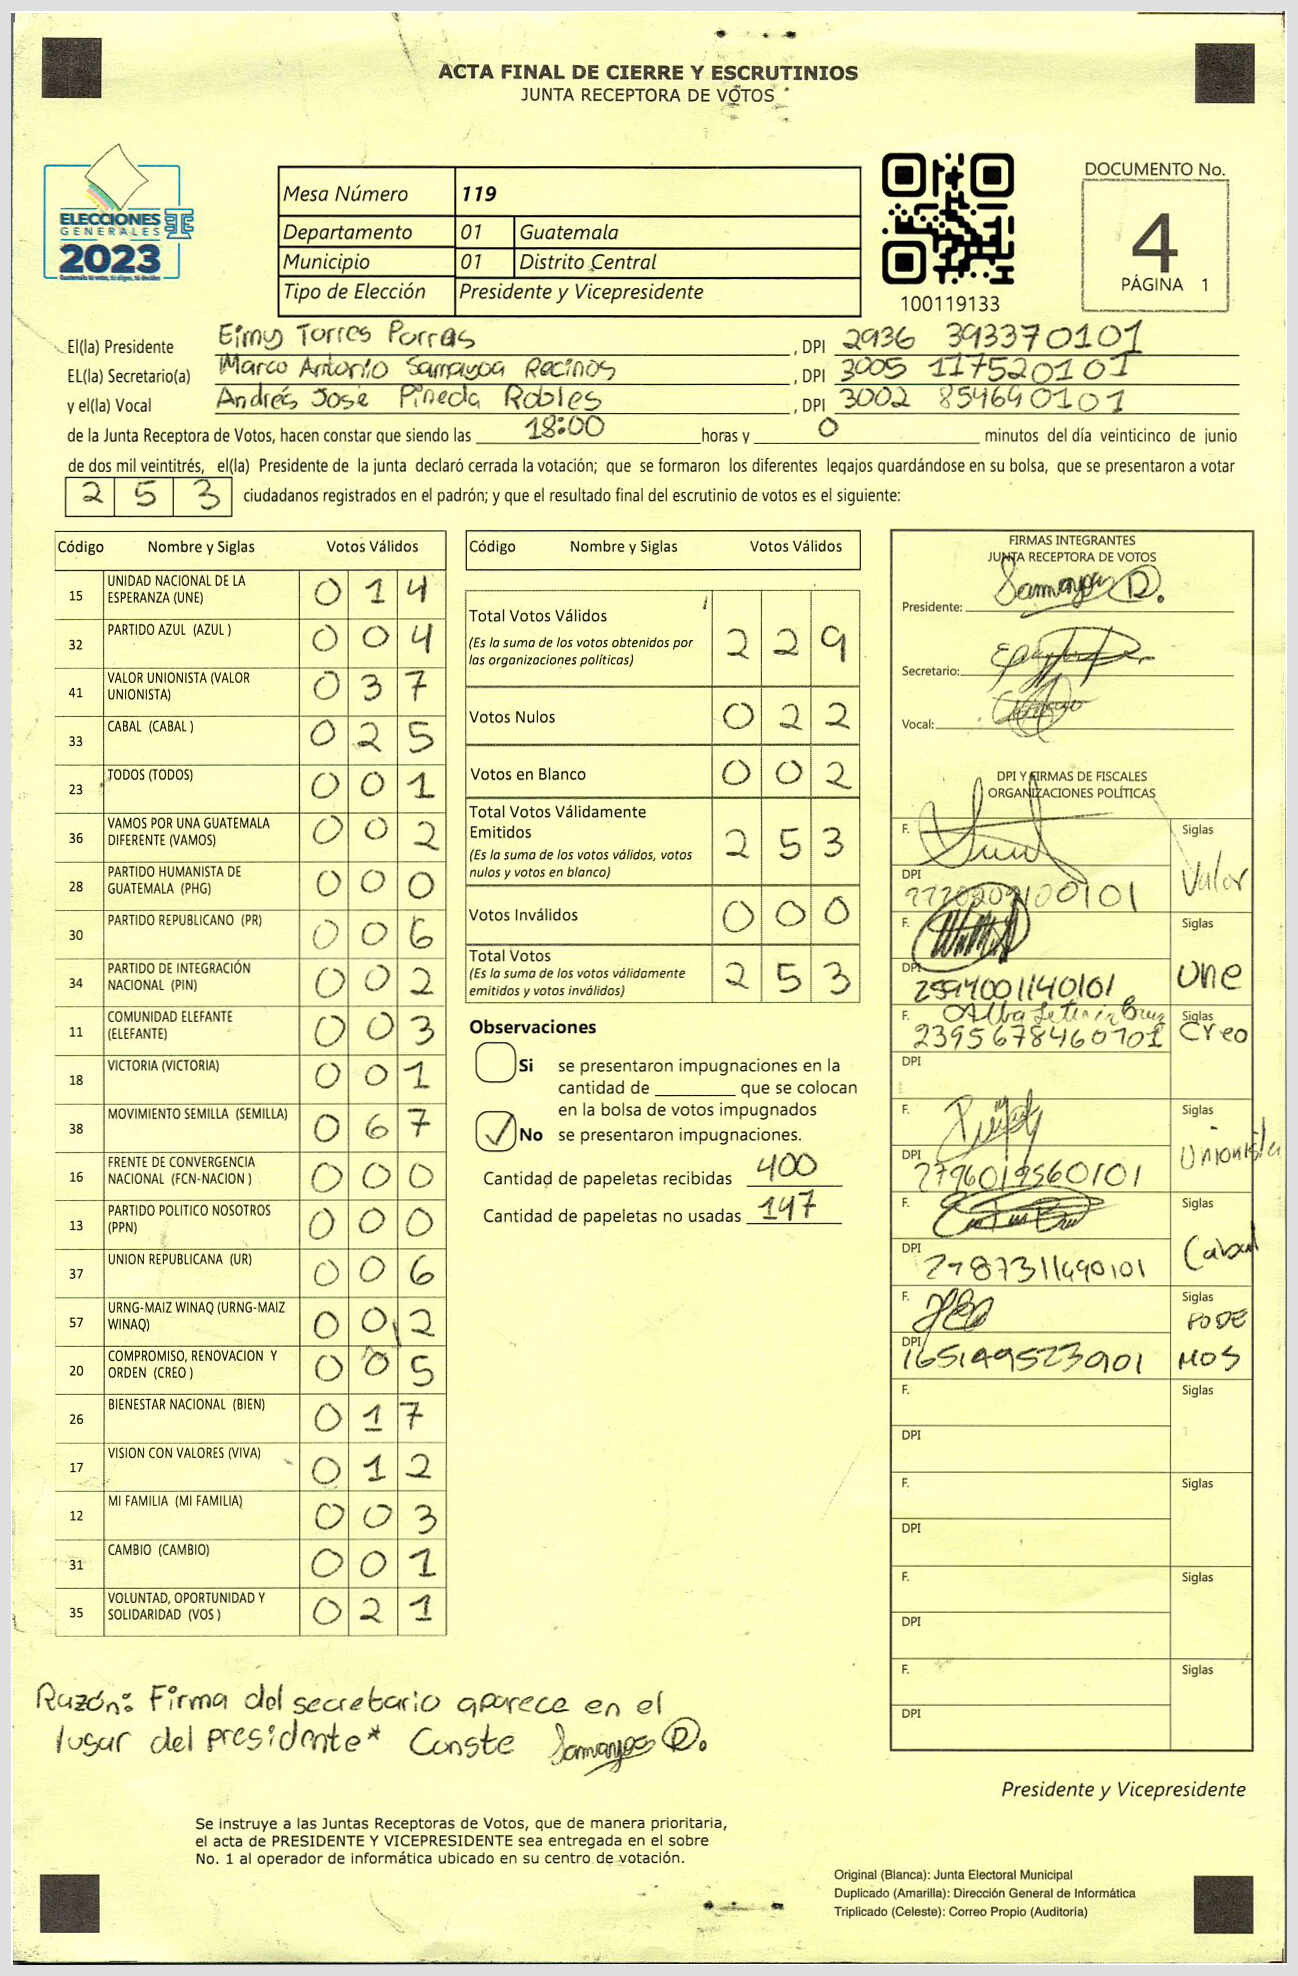 ACTA FINAL DE CIERRE Y ESCRUTINIOS
JUNTA RECEPTORA DE VOTOS
ELECCIONES
GENERALES
2023
Mesa Número 119
Departamento 01 Guatemala
Municipio 01 Distrito Central
Tipo de Elección Presidente y Vicepresidente
100119133
DOCUMENTO No.
4
PÁGINA 1
El(la) Presidente Eimy Torres Porras , DPI 2936 393370101
EL(la) Secretario(a) Marco Antonio Samayoa Recinos , DPI 3005 117520101
y el(la) Vocal Andrés José Pineda Robles , DPI 3002 854640101
de la Junta Receptora de Votos, hacen constar que siendo las 18:00 horas y 0 minutos del día veinticinco de junio
de dos mil veintitrés, el(la) Presidente de la junta declaró cerrada la votación; que se formaron los diferentes legajos quardándose en su bolsa, que se presentaron a votar
2 5 3 ciudadanos registrados en el padrón; y que el resultado final del escrutinio de votos es el siguiente:
Código Nombre y Siglas Votos Válidos
15 UNIDAD NACIONAL DE LA
ESPERANZA (UNE) 0 1 4
32 PARTIDO AZUL (AZUL ) 0 0 4
41 VALOR UNIONISTA (VALOR
UNIONISTA) 0 3 7
33 CABAL (CABAL ) 0 2 5
23 TODOS (TODOS) 0 0 1
36 VAMOS POR UNA GUATEMALA
DIFERENTE (VAMOS) 0 0 2
28 PARTIDO HUMANISTA DE
GUATEMALA (PHG) 0 0 0
30 PARTIDO REPUBLICANO (PR) 0 0 6
34 PARTIDO DE INTEGRACIÓN
NACIONAL (PIN) 0 0 2
11 COMUNIDAD ELEFANTE
(ELEFANTE) 0 0 3
18 VICTORIA (VICTORIA) 0 0 1
38 MOVIMIENTO SEMILLA (SEMILLA) 0 6 7
16 FRENTE DE CONVERGENCIA
NACIONAL (FCN-NACION ) 0 0 0
13 PARTIDO POLITICO NOSOTROS
(PPN) 0 0 0
37 UNION REPUBLICANA (UR) 0 0 6
57 URNG-MAIZ WINAQ (URNG-MAIZ
WINAQ) 0 0 2
20 COMPROMISO, RENOVACION Y
ORDEN (CREO ) 0 0 5
26 BIENESTAR NACIONAL (BIEN) 0 1 7
17 VISION CON VALORES (VIVA) 0 1 2
12 MI FAMILIA (MI FAMILIA) 0 0 3
31 CAMBIO (CAMBIO) 0 0 1
35 VOLUNTAD, OPORTUNIDAD Y
SOLIDARIDAD (VOS ) 0 2 1
Código Nombre y Siglas Votos Válidos
Total Votos Válidos 2 2 9
(Es la suma de los votos obtenidos por
las organizaciones políticas)
Votos Nulos 0 2 2
Votos en Blanco 0 0 2
Total Votos Válidamente
Emitidos 2 5 3
(Es la suma de los votos válidos, votos
nulos y votos en blanco)
Votos Inválidos 0 0 0
Total Votos 2 5 3
(Es la suma de los votos válidamente
emitidos y votos inválidos)
Observaciones
Si se presentaron impugnaciones en la
cantidad de que se colocan
en la bolsa de votos impugnados
No se presentaron impugnaciones.
Cantidad de papeletas recibidas 400
Cantidad de papeletas no usadas 147
FIRMAS INTEGRANTES
JUNTA RECEPTORA DE VOTOS
Presidente: Samayoa R.
Secretario:
Vocal:
DPI Y FIRMAS DE FISCALES
ORGANIZACIONES POLÍTICAS
F. Siglas
DPI Valor
F. Siglas
DPI 2594001140101 Une
F. Siglas
2395678460101 Creo
DPI
F. Siglas
DPI 2796019560101 Unionista
F. Siglas
DPI Cabal
F. Siglas
PODE
DPI 1651495230901 MOS
F. Siglas
DPI
F. Siglas
DPI
F. Siglas
DPI
F. Siglas
DPI
Razón: Firma del secretario aparece en el
lugar del presidente* Conste Samayoa R.
Presidente y Vicepresidente
Se instruye a las Juntas Receptoras de Votos, que de manera prioritaria,
el acta de PRESIDENTE Y VICEPRESIDENTE sea entregada en el sobre
No. 1 al operador de informática ubicado en su centro de votación.
Original (Blanca): Junta Electoral Municipal
Duplicado (Amarilla): Dirección General de Informática
Triplicado (Celeste): Correo Propio (Auditoría)